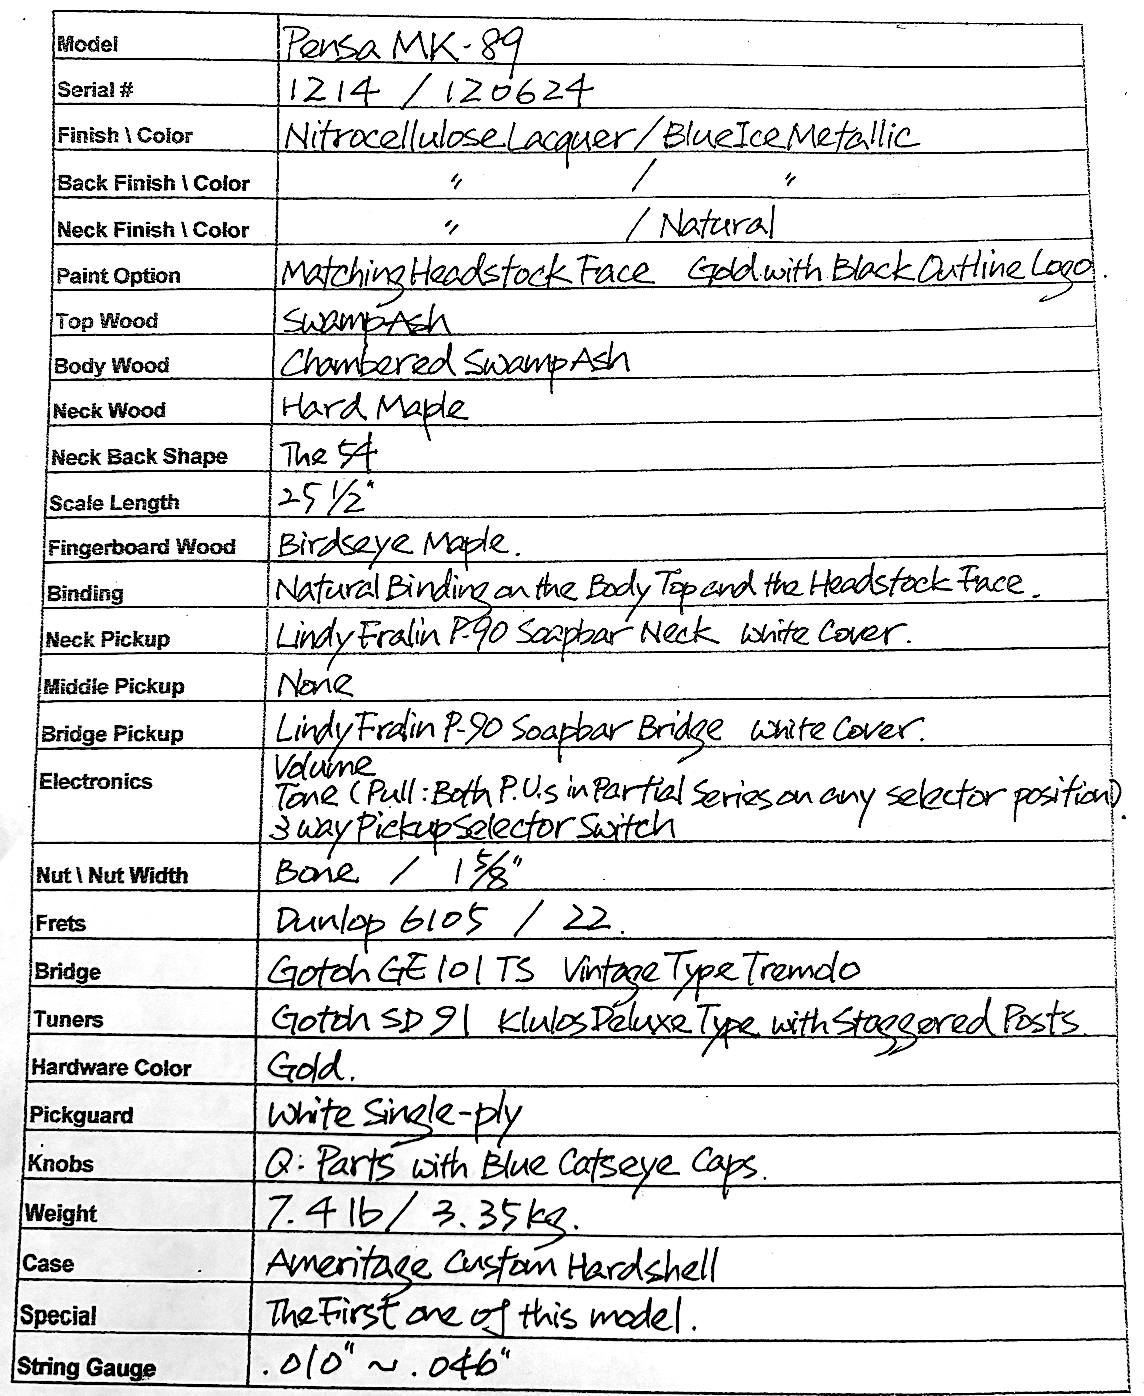 Model Pensa MK-89
Serial # 1214 / 120624
Finish \ Color Nitrocellulose Lacquer / Blue Ice Metallic
Back Finish \ Color " / "
Neck Finish \ Color " / Natural
Paint Option Matching Headstock Face Gold with Black Outline Logo.
Top Wood Swamp Ash
Body Wood Chambered Swamp Ash
Neck Wood Hard Maple
Neck Back Shape The 54
Scale Length 25 1/2"
Fingerboard Wood Birdseye Maple.
Binding Natural Binding on the Body Top and the Headstock Face.
Neck Pickup Lindy Fralin P-90 Soapbar Neck White Cover.
Middle Pickup None
Bridge Pickup Lindy Fralin P-90 Soapbar Bridge White Cover.
Electronics Volume
Tone (Pull: Both P.U.s in Partial Series on any selector position).
3 way Pickup Selector Switch
Nut \ Nut Width Bone / 1 5/8"
Frets Dunlop 6105 / 22.
Bridge Gotoh GE101TS Vintage Type Tremolo
Tuners Gotoh SD91 Klulos Deluxe Type with Staggered Posts
Hardware Color Gold.
Pickguard White Single-ply
Knobs Q: Parts with Blue Catseye Caps.
Weight 7.4 lb / 3.35 kg.
Case Ameritage Custom Hardshell
Special The First one of this model.
String Gauge .010" ~ .046"